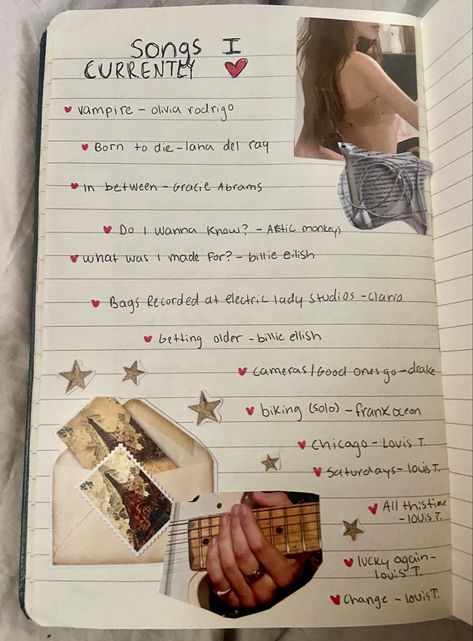 Songs I
CURRENTLY
vampire - olivia rodrigo
Born to die - lana del ray
In between - Gracie Abrams
Do I wanna know? - Artic monkeys
what was I made for? - billie eilish
Bags Recorded at electric lady studios - clario
Getting older - billie eilish
cameras / Good ones go - drake
biking (solo) - frank ocean
Chicago - Louis T.
Saturdays - louis T.
All this time
- louis T.
lucky again -
louis T.
change - louis T.